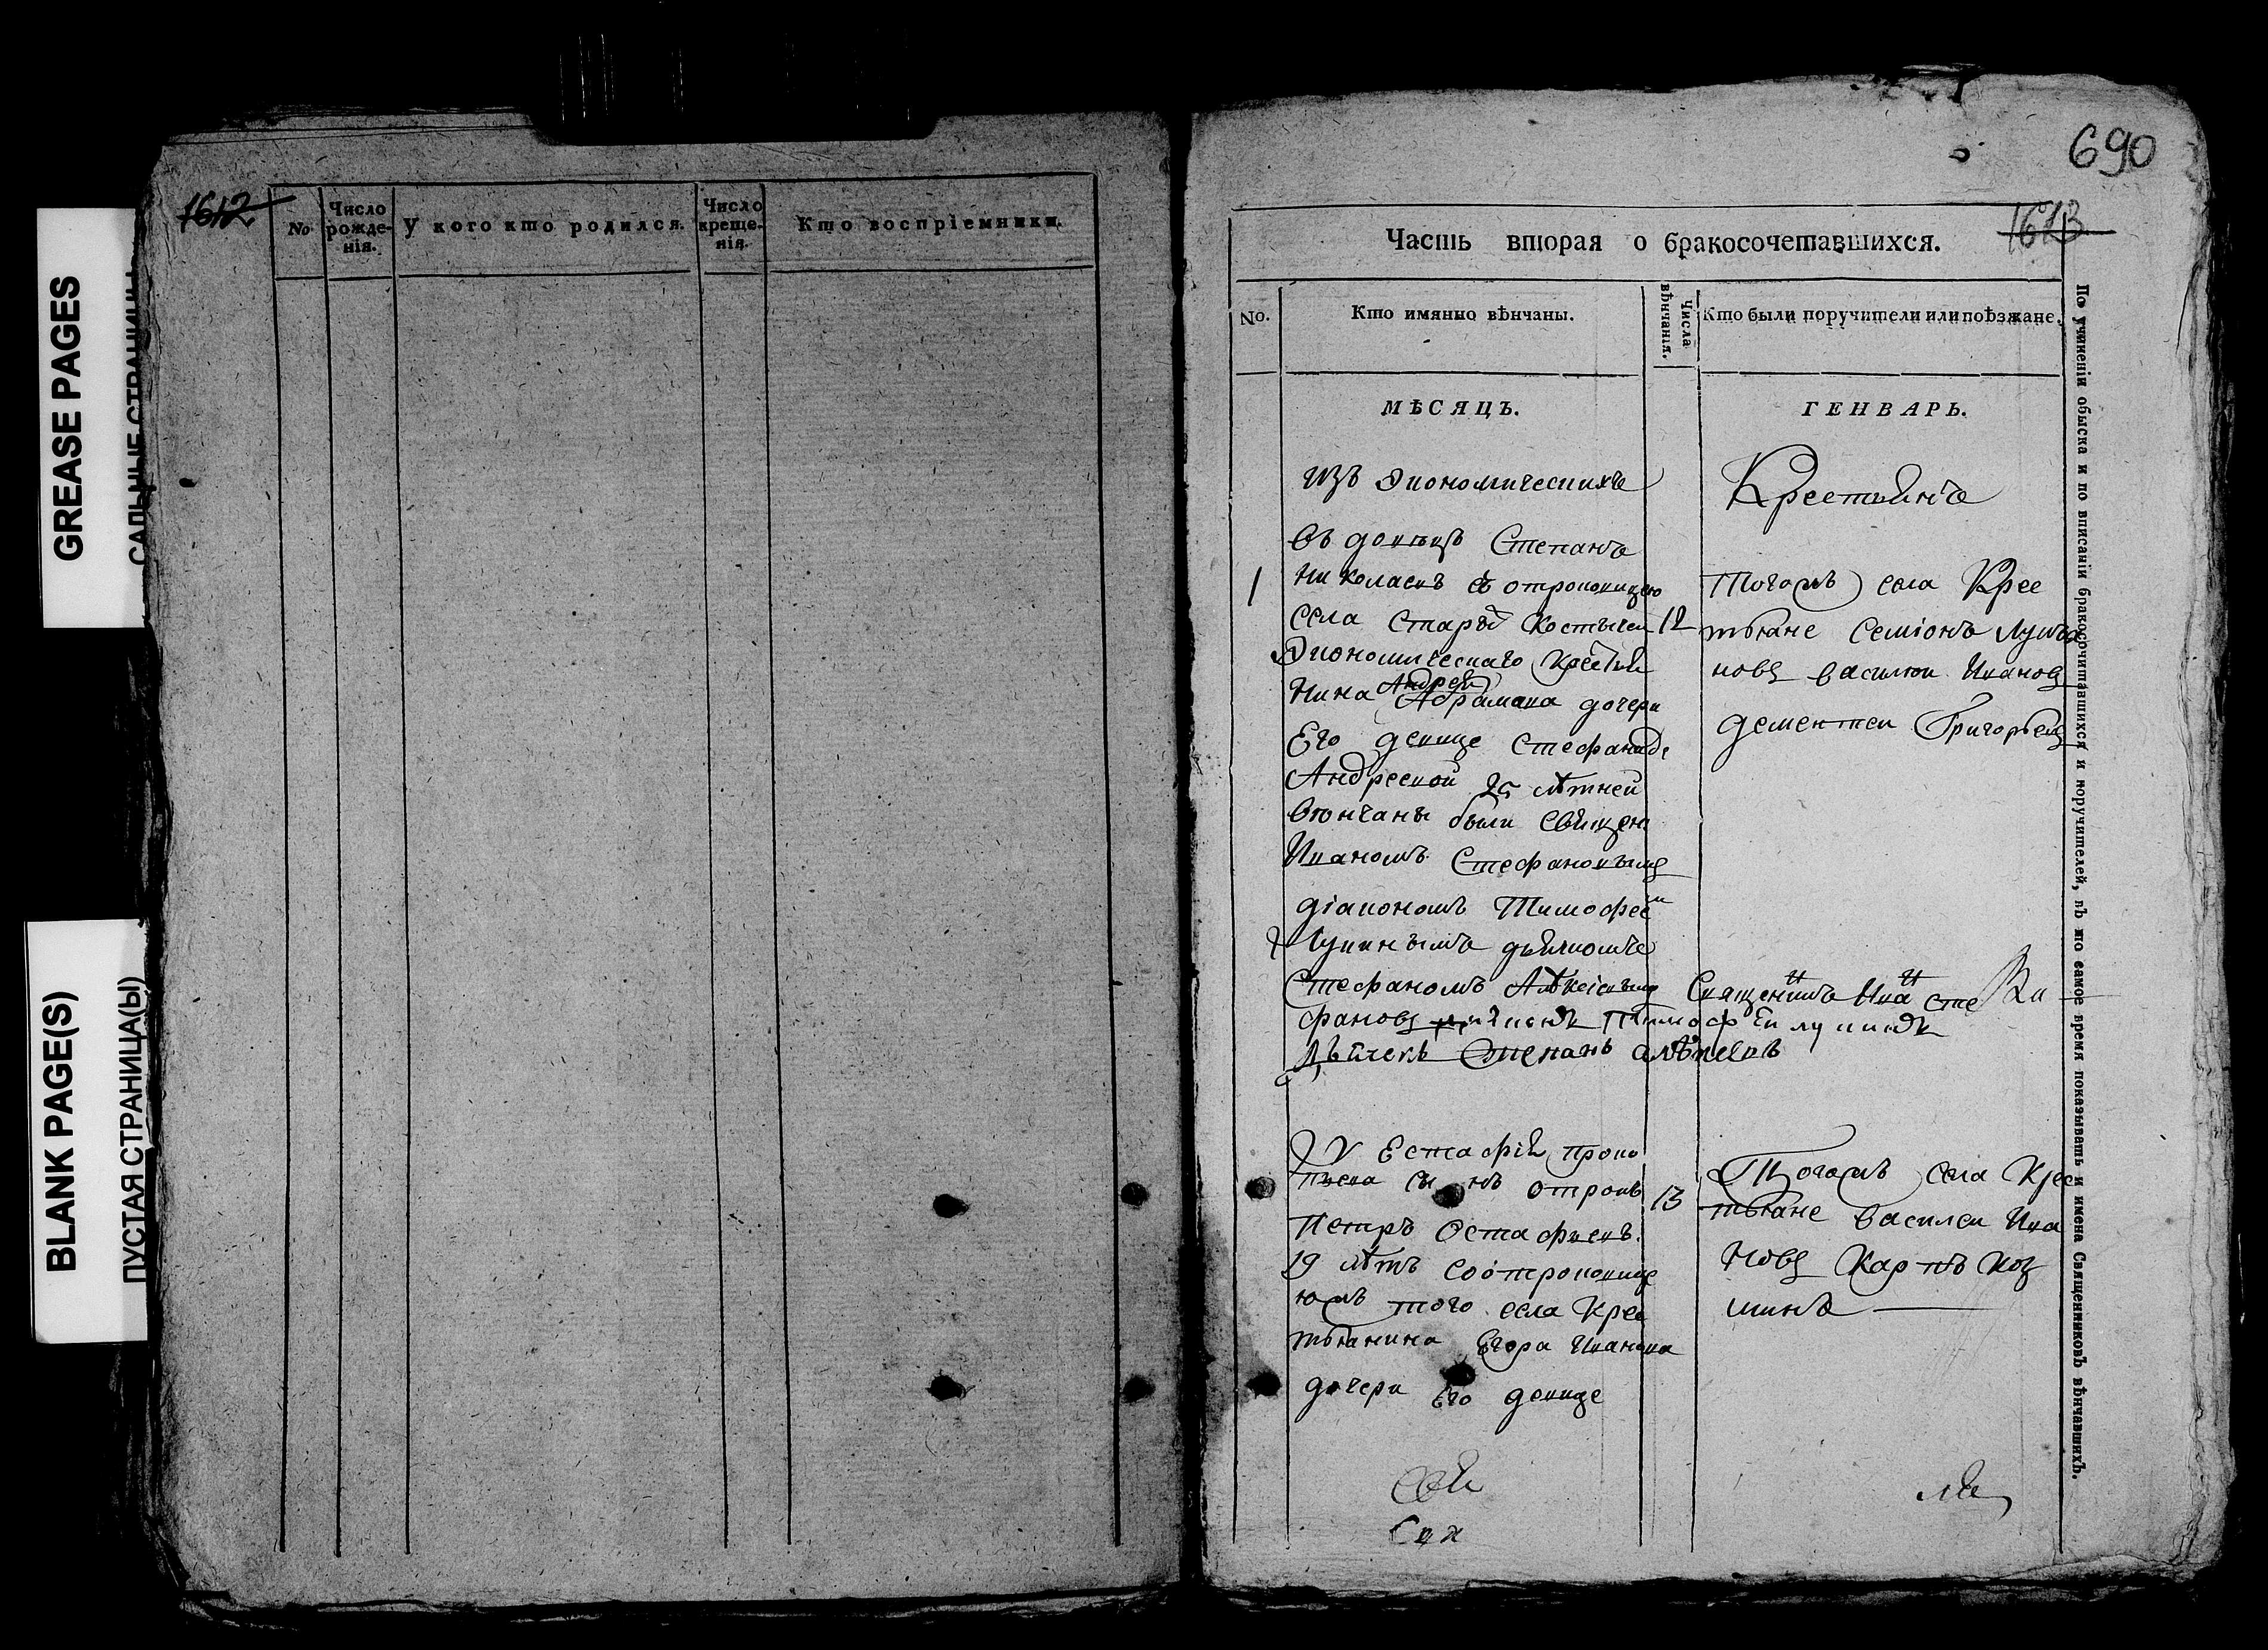 GREASE PAGES
САЛЬНЫЕ СТРАНИЦЫ
BLANK PAGE(S)
ПУСТАЯ СТРАНИЦА(Ы)
1612
No.
Число рожденія.
У кого кто родился.
Число крещенія.
Кто воспріемники.
690
1613
Часть вторая о бракосочетавшихся.
No.
Кто имянно вѣнчаны.
Числа вѣнчанія.
Кто были поручители или поѣзжане.
МѢСЯЦЪ.
ГЕНВАРЬ.
Изъ Экономическихъ
Крестьянъ
вдовецъ Степанъ
1
Николаевъ съ отроковицею
села Старой Костычеи
Экономическаго крестья
нина Андрея Абрамова дочери
Его девице Стефаниде
Андреевой 25 лѣтней
венчаны были священ
Иваномъ Стефановымъ
діакономъ Тимофеемъ
Лукинымъ дьячкомъ
Стефаномъ Алѣксѣевымъ
12
Тогожъ села Крес
тьяне Семіонъ
новъ Василеи Ивановъ
дементеи Григорьевъ
Священникъ Иванъ Сте
фановъ діяконъ Тимофѣи лукинъ
Дьячекъ Степанъ алѣксеевъ
2
У Естафія проко
пьева сынъ отрокъ
Петръ Остафьевъ
19 лѣтъ со отроковице
ю тогожъ села Крес
тьянина Егора Иванова
дочери его девице
13
Тогожъ села Крес
тьяне василеи Ива
новъ Карпъ Коз
минъ
По учиненіи обыска и по вписаніи бракосочетавшихся и поручителей, въ то самое время показывать и имена Священниковъ вѣнчавшихъ.